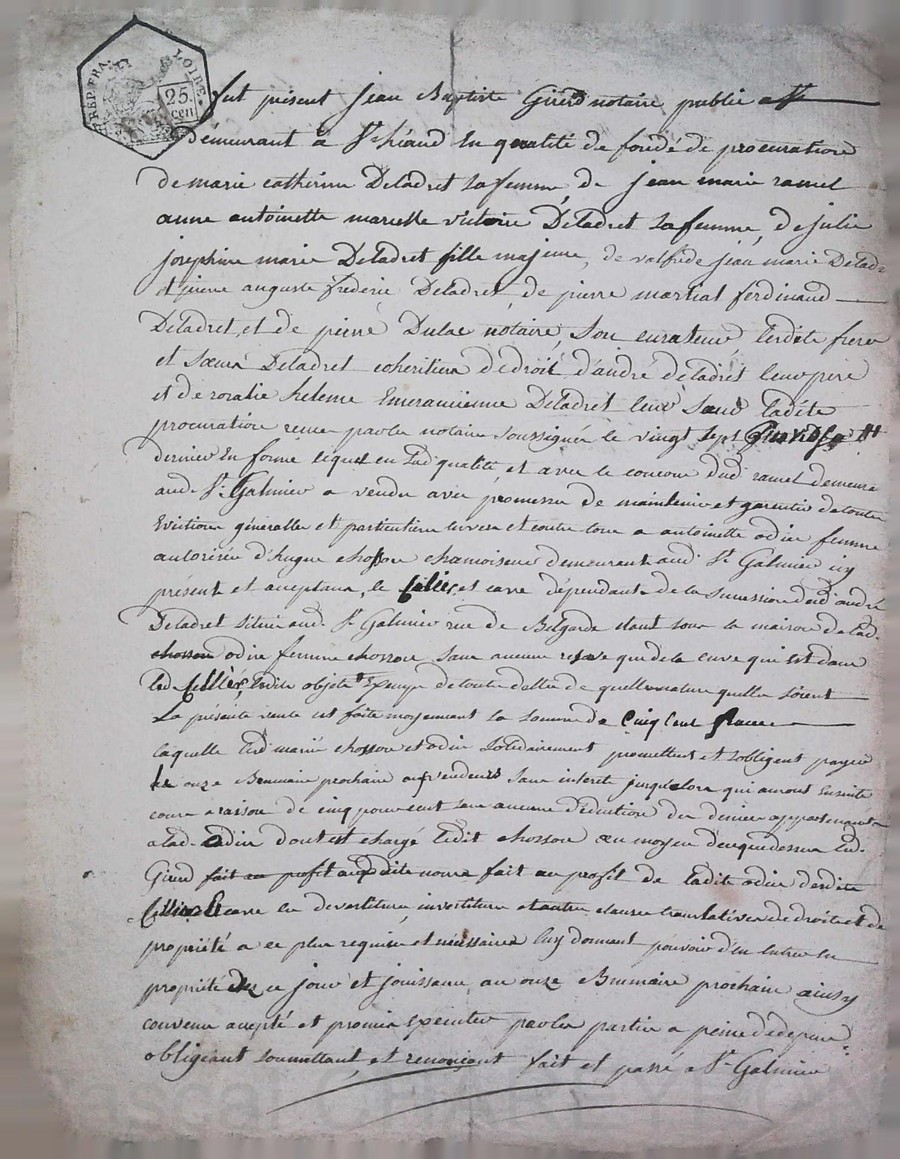 RÉP. FRA. LOIRE.
25. cen
fut présent Jean Baptiste Girerd notaire public
demeurant à St héand En qualité de fondé de procuration
de marie catherine Deladret sa femme, de jean marie ramel
anne antoinette marcelle victoire Deladret sa femme, de julie
josephine marie Deladret fille majeure, de valfride jean marie Deladret
et pierre auguste frederic Deladret, de pierre martial ferdinand
Deladret, et de pierre Dulac notaire, son curateur, lesdits freres
et soeurs Deladret coheritiers de droit d'andré deladret leur pere
et de rosalie heleme Deladret leur soeur ladite
procuration recue par le notaire soussigné le vingt sept
dernier En forme lequel en lad. qualité et avec le concour dud ramel demeurant
aud. St Galmier a vendu avec promesse de maintenir et garentir de toute
Eviction généralle et particulière envers et contre tous a antoinette odin femme
autorisée d'hugue chosson chamoiseur demeurant aud St Galmier icy
présent et acceptant, le Cellier, et cave dépendants de la succession dud andré
Deladret situés aud. St Galmier rue de Belgarde étant sous la maison de lad.
chosson odin femme chosson sans aucune reserve que de la cuve qui Est dans
led Cellier, lesdits objets Exempt de toute dette de quelle nature quelle soient
La présente vente est faite moyennant la somme de Cinq Cent francs
laquelle lesd mariés chosson et odin solidairement promettent et s'obligent payer
le onze Brumaire prochain aux vendeurs sans interet jusqu'alors qui auront Ensuite
cours a raison de cinq pour cent sans aucune déduction des deniers appartenants
a lad. Odin dont est chargé ledit chosson au moyen de quoy dessus led.
Girerd fait au profit nomé fait au profit de ladite odin desdits
Cellier Et cave les devestiture, investiture et autres clauses translatives de droits et de
propriété a ce plus requises et nécessaires luy donnant pouvoir d'en entrer en
propriété dez ce jour et jouissance au onze Brumaire prochain ainsy
convenu accepté et promis Executer par les parties a peine de depens
obligeant soumettant, et renonçant fait et passé a St Galmier